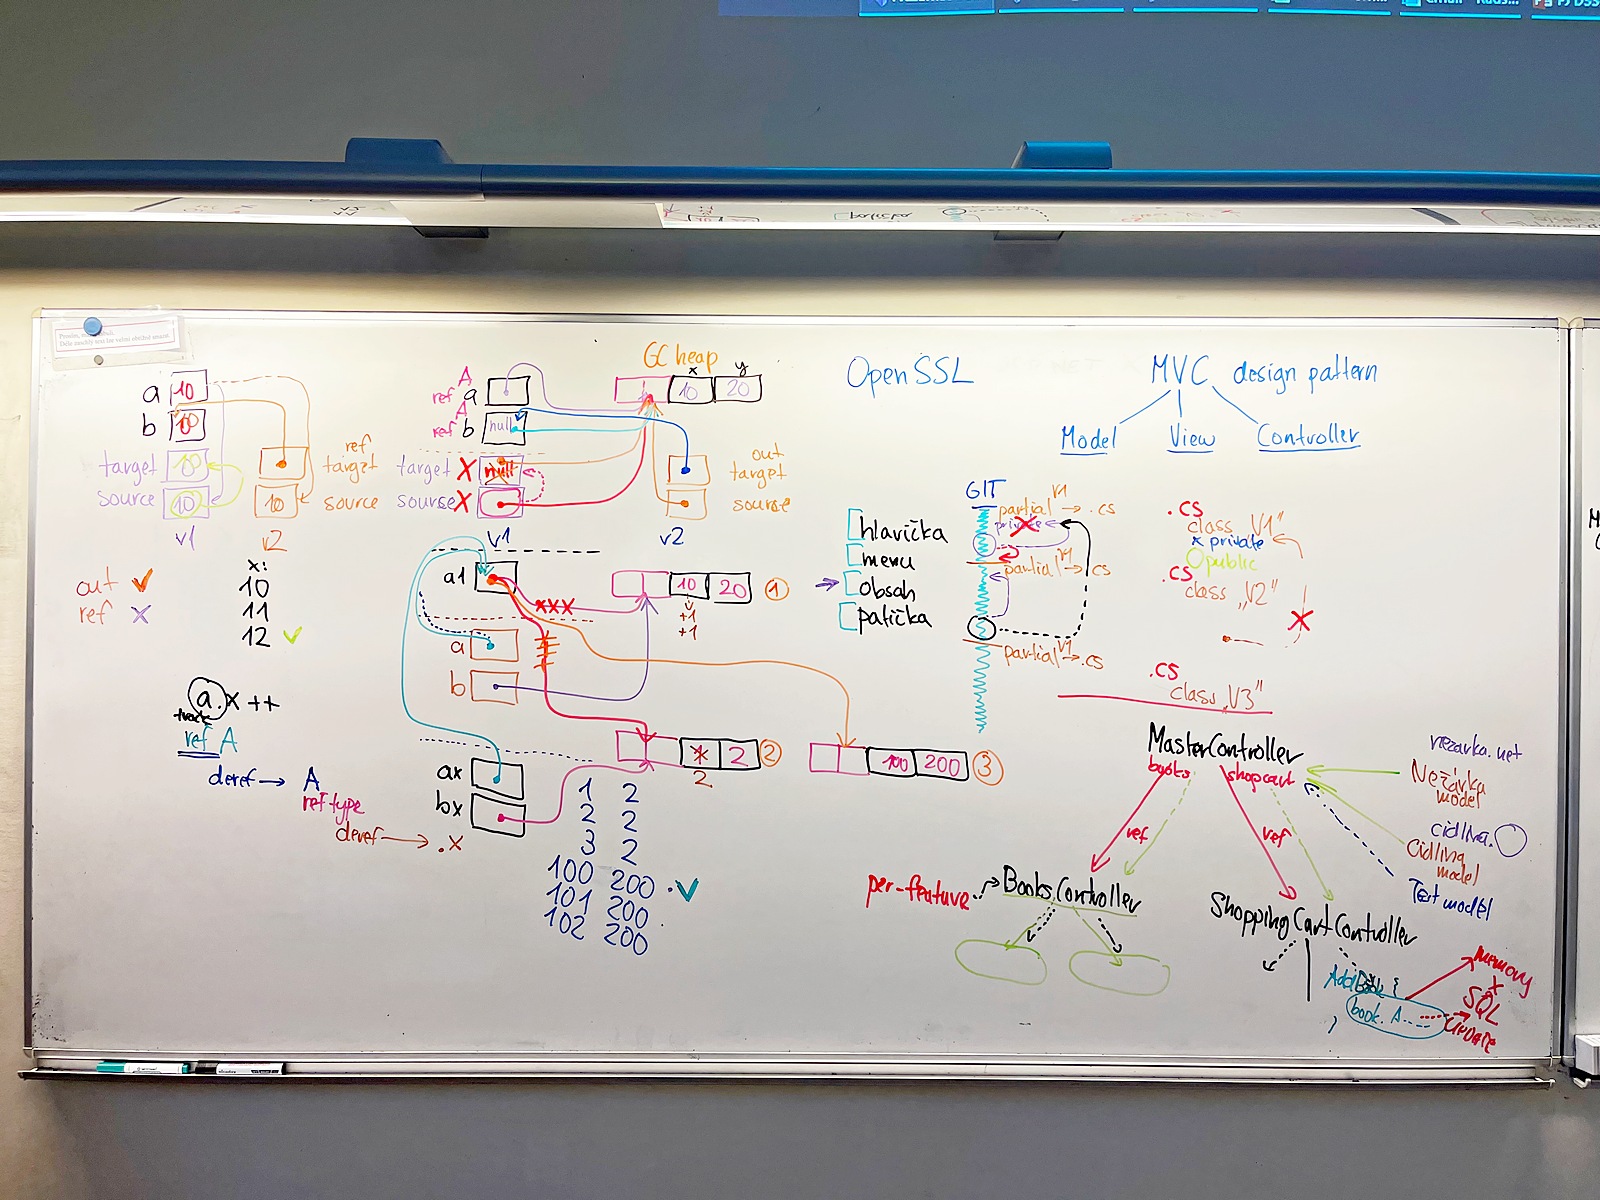 a 10
b 10
target 10
source 10
v1
ref
target
10 source
v2
out ✓
ref X
x:
10
11
12 ✓
a.x++
track
ref A
deref → A
ref type
deref → .x
GC heap
x y
A
ref a
10 20
A
ref b null
target X null
source X
v1
out
target
source
v2
a1
XXX
10 20 1
+1
+1
a
b
2 2
2
100 200 3
ax
bx
1 2
2 2
3 2
100 200 ✓
101 200
102 200
OpenSSL
hlavička
menu
→ obsah
patička
GIT
partial V1 → .cs
private
partial V1 → .cs
partial V1 → .cs
MVC design pattern
Model View Controller
.cs
class „V1"
x private
public
.cs
class „V2"
X
.cs
class „V3"
MasterController
books shopcart
ref ref
nezarka.net
Nežárka
model
cidlina.
Cidlina
model
Test model
per-feature
BooksController
ShoppingCartController
AddBook {
book. A
}
memory
x
SQL
UPDATE